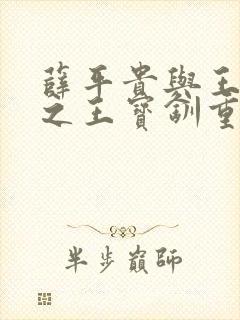 薛平貴與王
之王寶釧重
半步巔師